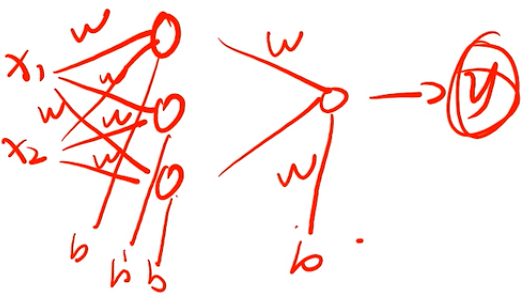 w
w
x₁
w
w
w
x₂
w
b
b
b
w
w
b
y